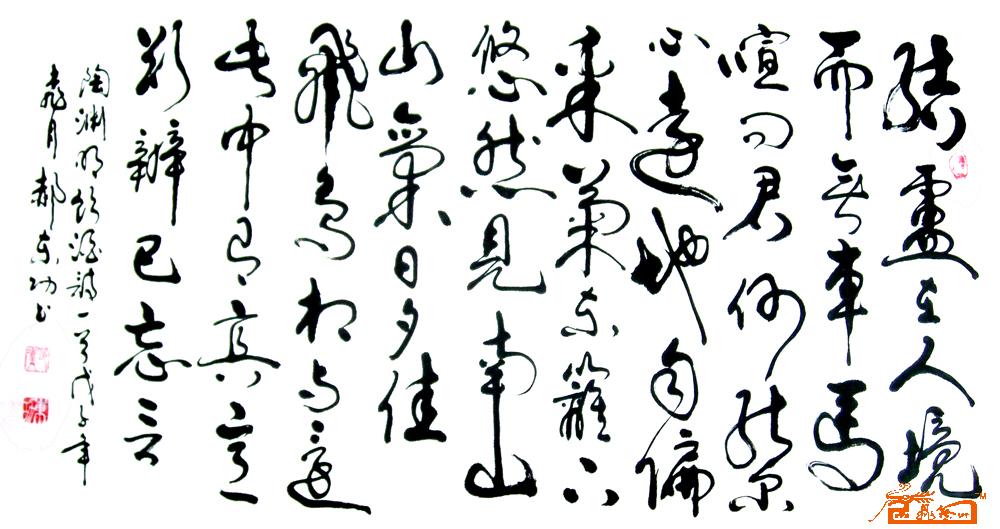 結廬在人境
而無車馬
喧问君何能尔
心遠地自偏
采菊东籬下
悠然見南山
山氣日夕佳
飛鳥相与還
此中有真意
欲辨已忘言
陶渊明饮酒诗一首戊子年
月郝东功书